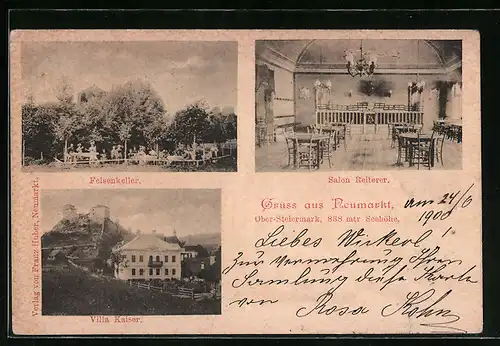 Verlag von Franz Huber, Neumarkt.
Felsenkeller.
Salon Reiterer.
Villa Kaiser.
Gruss aus Neumarkt,
Ober-Steiermark, 838 mtr Seehöhe,
am 24/6
1900
Liebes Wickerl!
Zur Vermehrung Ihrer
Samlung diese Karte
von Rosa Kohn